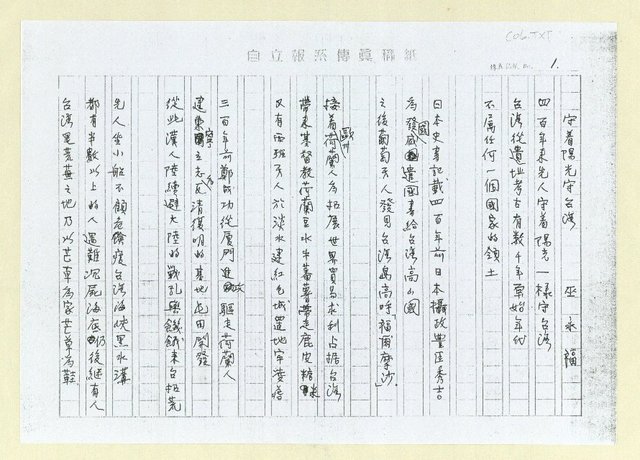 自立報系傳真稿紙
C06.TXT
1.
守着陽光守台灣 巫永福
四百年來先人守着陽光一樣守台灣
台灣從遺址考古有數千年原始年代
不属任何一個國家的領土
日本史書記載四百年前日本攝政豐臣秀吉
為發國遣國書給台灣高山國
之後葡萄牙人發見台灣島高呼「福爾摩沙」
接着歐洲荷蘭人為拓展世界貿易求利占据台灣
帶來基督教荷蘭豆水牛蕃薯帶走鹿皮糖米
又有西班牙人於淡水建紅毛城置地牢
三百年前鄭成功從厦門進攻驅走荷蘭人
建東寧立志為反清復明的基地屯田開發
從此漢人陸續避大陸的戰乱與饑餓來台拓荒
先人坐小船不顧危險渡台灣海峽黑水溝
都有半數以上的人遇難沉屍海底仍後継有人
台灣是荒蕪之地乃以芒草為家芒草為鞋